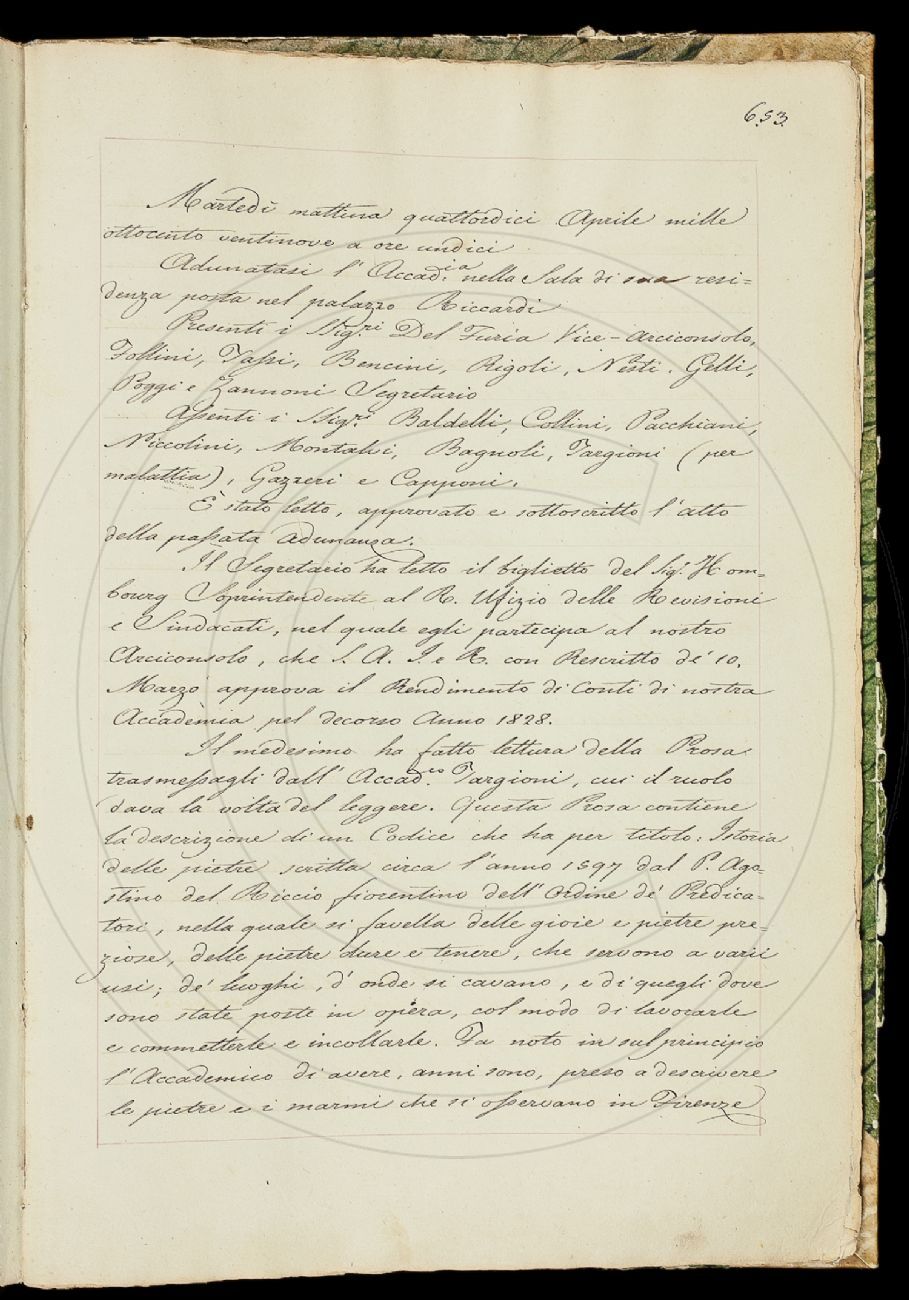 653.
Martedì mattina quattordici Aprile mille
ottocento ventinove a ore undici.
Adunatasi l'Accad.ia nella Sala di sua resi=
denza posta nel palazzo Riccardi
Presenti i Sig.ri Del Furia Vice-Arciconsolo,
Follini, Tassi, Bencini, Rigoli, Nesti, Gelli,
Poggi e Zannoni Segretario
Assenti i Sig.ri Baldelli, Collini, Pacchiani,
Niccolini, Montalvi, Bagnoli, Targioni (per
malattia), Gazzeri e Capponi.
È stato letto, approvato e sottoscritto l'atto
della passata adunanza.
Il Segretario ha letto il biglietto del Sig.r Hom=
bourg Soprintendente al R. Ufizio delle Revisioni
e Sindacati, nel quale egli partecipa al nostro
Arciconsolo, che S. A. I. e R. con Rescritto de' 10.
Marzo approva il Rendimento di Conti di nostra
Accademia pel decorso Anno 1828.
Il medesimo ha fatto lettura della Prosa
trasmessagli dall'Accad.co Targioni, cui il ruolo
dava la volta del leggere. Questa Prosa contiene
la descrizione di un Codice che ha per titolo: Istoria
delle pietre scritta circa l'anno 1597 dal P. Ago=
stino del Riccio fiorentino dell'Ordine de' Predica=
tori, nella quale si favella delle gioie e pietre pre=
ziose, delle pietre dure e tenere, che servono a varii
usi; de' luoghi, d'onde si cavano, e di quegli dove
sono state poste in opera, col modo di lavorarle
e commetterle e incollarle. Fa noto in sul principio
l'Accademico di avere, anni sono, preso a descrivere
le pietre e i marmi che si osservano in Firenze